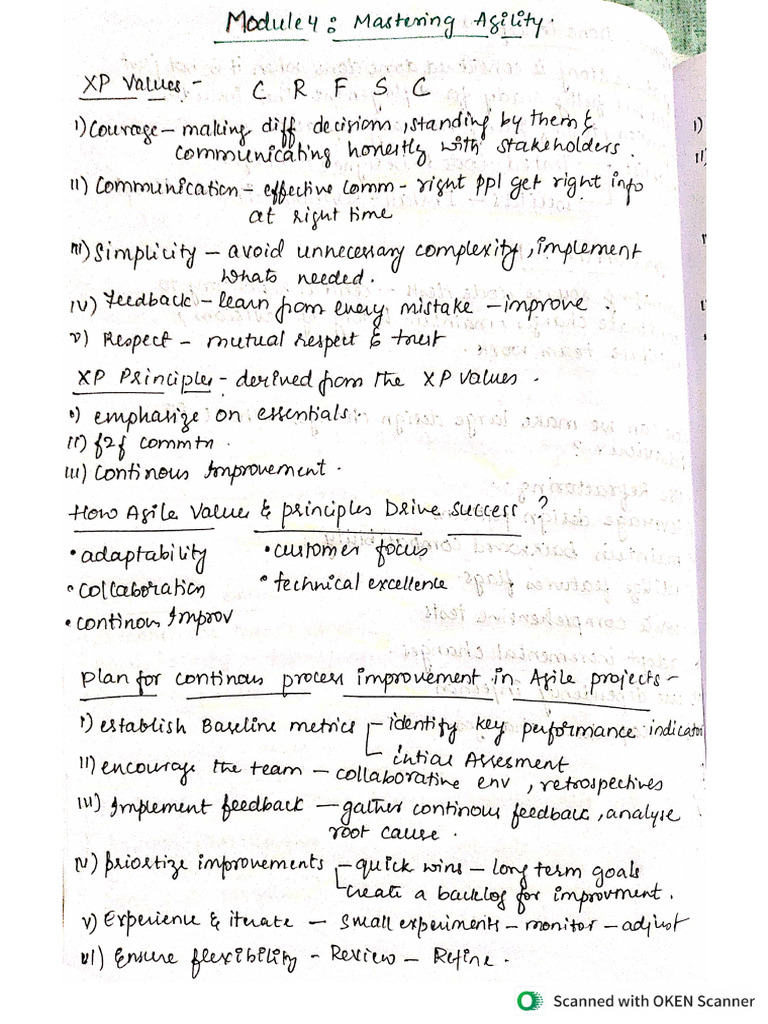 Module 4 : Mastering Agility.
XP Values - C R F S C
i) Courage - making diff decisions, standing by them &
communicating honestly with stakeholders.
II) Communication - effective comm - right ppl get right info
at right time
III) Simplicity - avoid unnecessary complexity, implement
whats needed.
IV) Feedback - learn from every mistake - improve.
v) Respect - mutual respect & trust
XP Principles - derived from the XP values.
i) emphasize on essentials.
II) f2f commtn.
III) continous Improvement.
How Agile Values & principles Drive success?
• adaptability • customer focus
• collaboration • technical excellence
• continous Improv
Plan for continous process improvement in Agile projects -
i) establish Baseline metrics - identify key performance indicator
- intial Assesment
II) encourage the team - collaborative env, retrospectives
III) Implement feedback - gather continous feedback, analyse
root cause.
IV) priortize improvements - quick wins - long term goals
- create a backlog for improvment.
v) Experience & iterate - small experiments - monitor - adjust
vi) Ensure flexibility - Review - Refine.
Scanned with OKEN Scanner